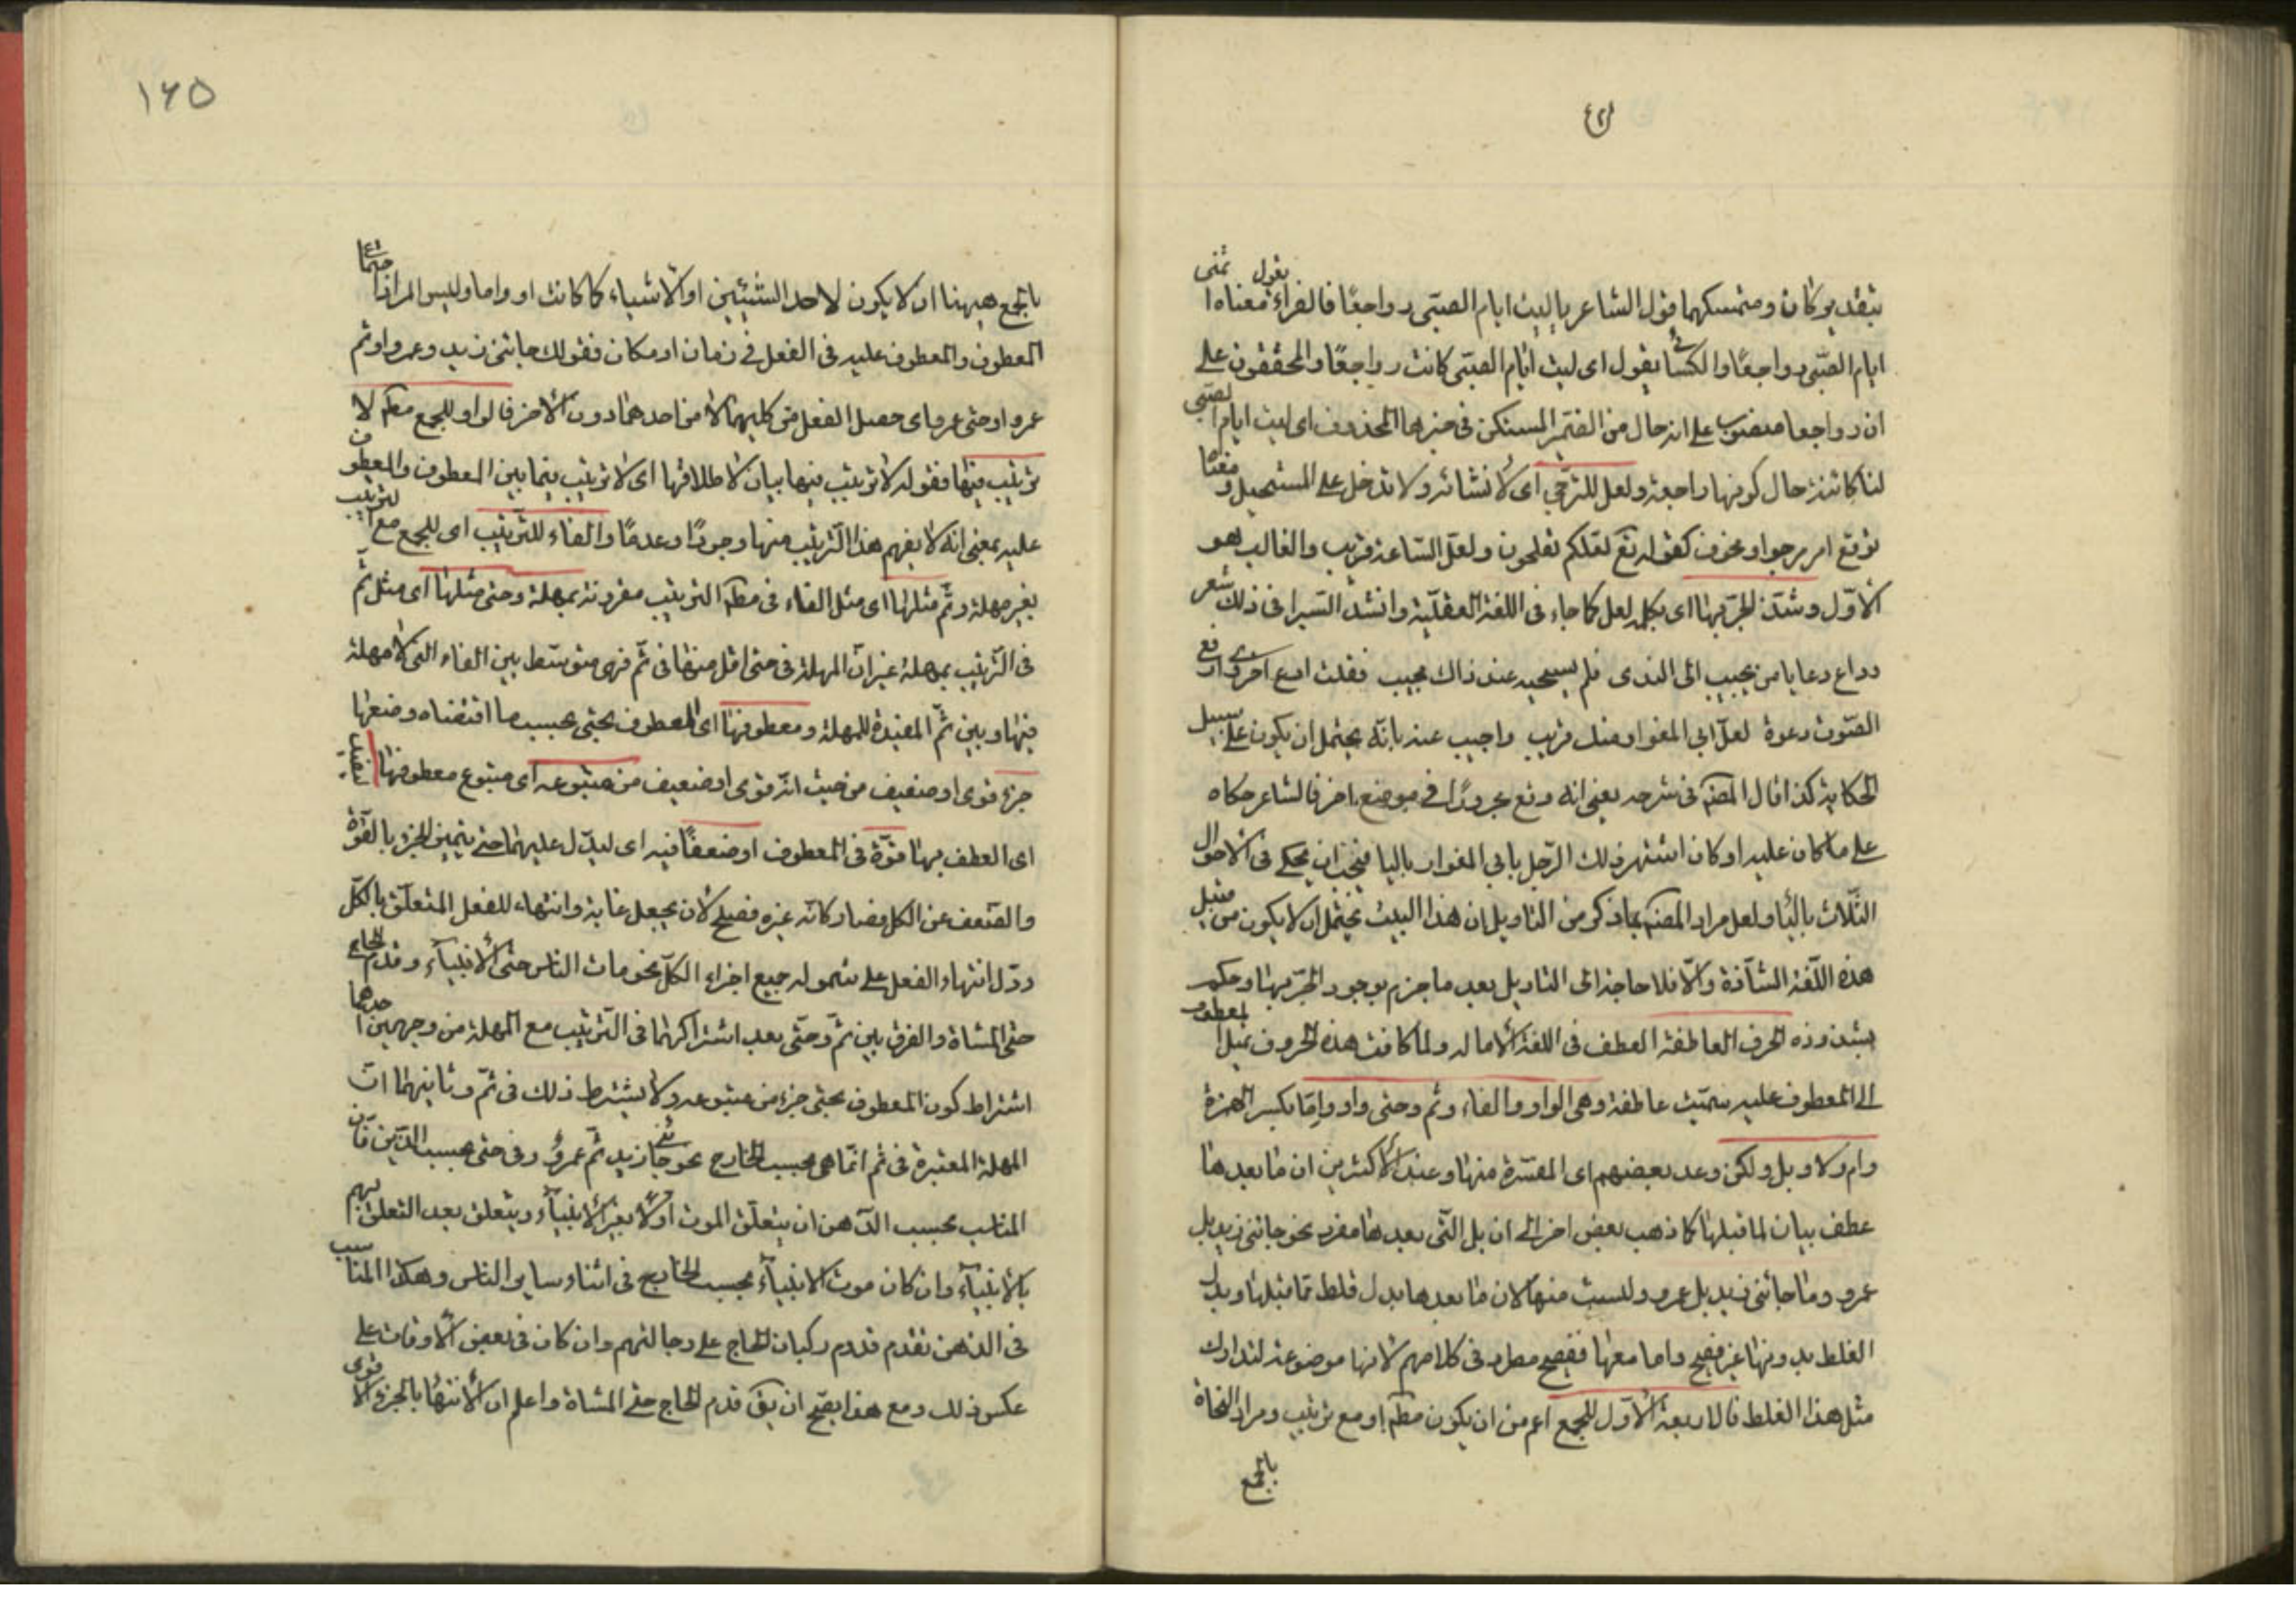 بتقدير كان ومتمسكهما قول الشاعر يا ليت ايام الصبى رواجعًا فالفراء يقول معناه اتمنى
ايام الصبى رواجعًا والكسائى يقول اى ليت ايام الصبى كانت رواجعًا والمحققون على
ان رواجعا منصوب على انه حال من الضمير المستكن فى خبرها المحذوف اى ليت ايام الصبى
لنا كائنة حال كونها راجعة ولعل للترجى اى لانشائه ولا تدخل على المستحيل ومعناها
توقع امر مرجو او مخوف كقوله تع لعلكم تفلحون ولعل الساعة قريب والغالب هو
الاوّل وشذّ الجرّ بها اى بكلمة لعل كما جاء فى اللغة العقلية وانشد السيرافى ذلك شعر
وداع دعا يا من يجيب الى الندى فلم يستجبه عند ذاك مجيب فقلت ادع اخرى وارفع
الصّوت دعوة لعلّ ابى المغوار منك قريب واجيب عنه بانّه يحتمل ان يكون على سبيل
الحكاية كذا قال المصنف فى شرحه يعنى انه وقع مجرورًا فى موضع اخر فالشاعر حكاه
على ما كان عليه او كان اشتهر ذلك الرّجل بابى المغوار باليا فيجب ان يحكى فى الاحوال
الثّلاث بالياء ولعل مراد المصنف بما ذكر من التاويل ان هذا البيت يحتمل ان لا يكون من قبيل
هذه اللّغة الشاذة والّا فلا حاجة الى التاويل بعد ما جزم بوجود الجرّ بها وحكم
بشذوذه الحرف العاطفة العطف فى اللغة الامالة ولما كانت هذه الحروف تميل المعطوف
الى المعطوف عليه سميت عاطفة وهى الواو والفاء وثم وحتى واو وإمّا بكسر الهمزة
وام ولا وبل ولكن وعد بعضهم اى المفسّرة منها وعند الاكثرين ان ما بعدها
عطف بيان لما قبلها كما ذهب بعض اخر الى ان بل التى بعدها مفرد نحو جائنى زيد بل
عمرو وما جائنى زيد بل عمرو وليست منها لان ما بعدها بدل غلط مما قبلها وبدل
الغلط بدونها غير فصيح واما معها ففصيح مطرد فى كلامهم لانها موضوعة لتدارك
مثل هذا الغلط فالاربعة الاوّل للجمع اعم من ان يكون مطم او مع ترتيب ومراد النحاة
بالجمع
١٦٥
بالجمع هيهنا ان لا يكون لاحد الشيئين او الاشياء كما كانت او واما وليس المراد اجتماع
المعطوف والمعطوف عليه فى الفعل فى زمان او مكان فقولك جائنى زيد وعمرو او ثم
عمرو او حتى عمرو اى حصل الفعل من كليهما لا من احدهما دون الاخر فالواو للجمع مطم لا
ترتيب فيها فقوله لا ترتيب فيها بيان لاطلاقها اى لا ترتيب فيما بين المعطوف والمعطوف
عليه بمعنى انه لا يفهم هذا الترتيب منها وجودًا وعدمًا والفاء للترتيب اى للجمع مع الترتيب
بغير مهلة وثمّ مثلها اى مثل الفاء فى مطم الترتيب مقرونة بمهلة وحتى مثلها اى مثل ثمّ
فى الترتيب بمهلة غير ان المهلة فى حتى اقل منها فى ثمّ فهى متوسّط بين الفاء التى لا مهلة
فيها وبين ثمّ المفيدة للمهلة ومعطوفها اى المعطوف بحتى بحسب ما اقتضاه وضعها
جزء قوى او ضعيف من حيث انّه قوى او ضعيف من متبوعه اى متبوع معطوفها ليفيد
اى العطف بها قوّة فى المعطوف او ضعفًا فيه اى ليدّل عليهما حتى يتميز الجزء بالقوّة
والضعف عن الكل فصار كانه غيره فصلح لان يجعل غاية وانتهاء للفعل المتعلّق بالكلّ
ودلّ انتهاء الفعل على شموله جميع اجزاء الكلّ نحو مات الناس حتى الانبيآء وقدم الحاج
حتى المشاة والفرق بين ثمّ وحتّى بعد اشتراكهما فى الترتيب مع المهلة من وجهين احدهما
اشتراط كون المعطوف بحتى جزء من متبوعه ولا يشترط ذلك فى ثمّ وثانيهما ان
المهلة المعتبرة فى ثم انّما هى بحسب الخارج نحو جائنى زيد ثمّ عمرو وفى حتى بحسب الذّهن فان
المناسب بحسب الذّهن ان يتعلّق الموت اولًا بغير الانبيآء ويتعلق بعد التعلق بهم
بالانبيآء وان كان موت الانبيآء بحسب الخارج فى اثناء ساير الناس وهكذا المناسب
فى الذهن تقدم قدوم ركبان الحاج على رجالتهم وان كان فى بعض الاوقات على
عكس ذلك ومع هذا يصحّ ان يق قدم الحاج حتى المشاة واعلم ان الانتهاء بالجزء الاقوى